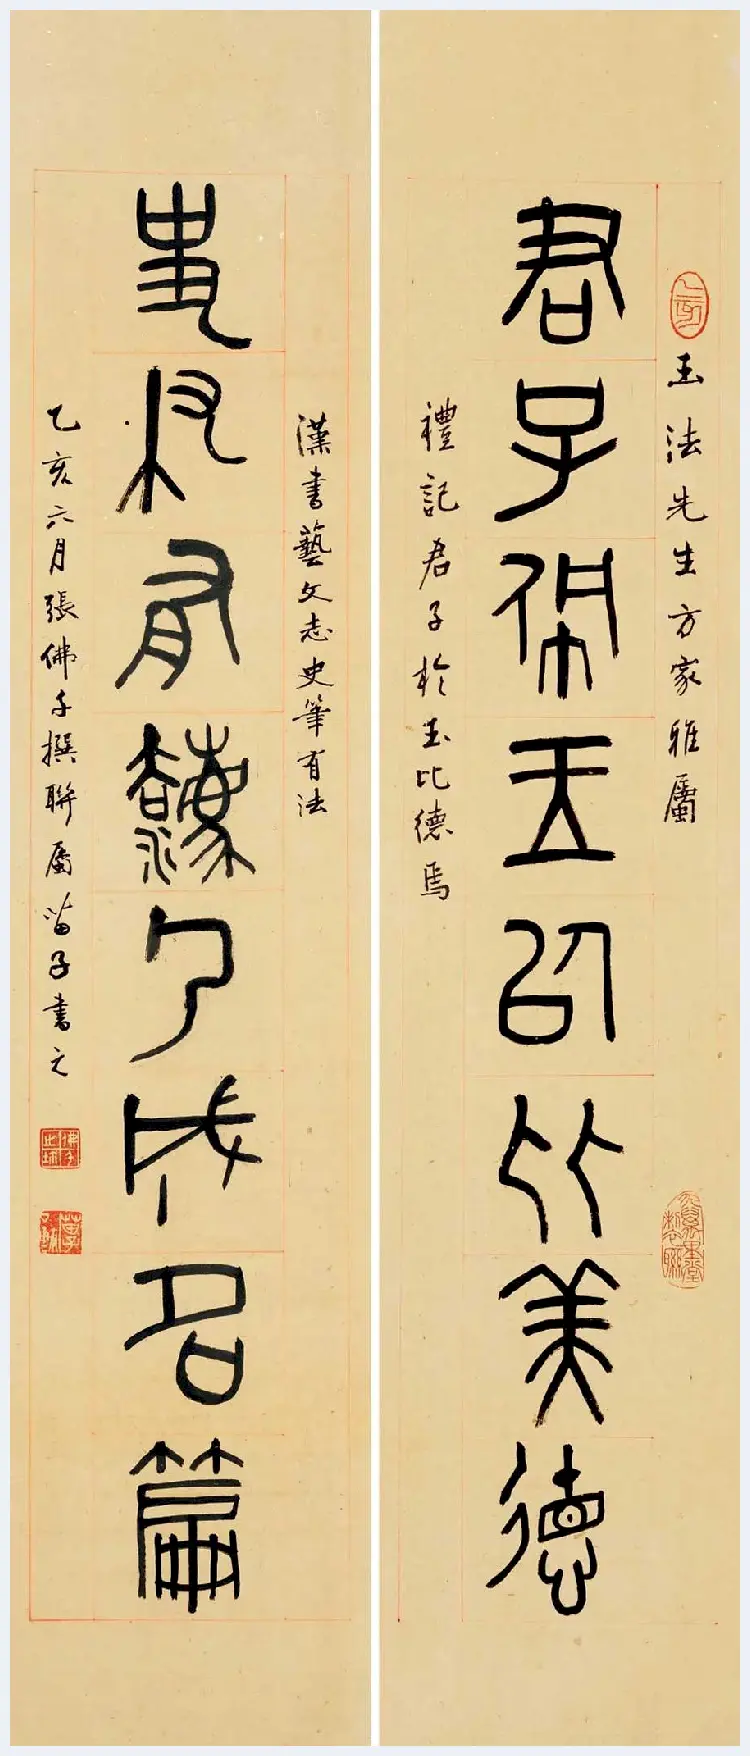 玉法先生方家雅屬
君子佩玉以比美德
禮記君子於玉比德焉
漢書藝文志史筆有法
史筆有灋乃成名篇
乙亥六月張佛千撰聯屬苗子書之